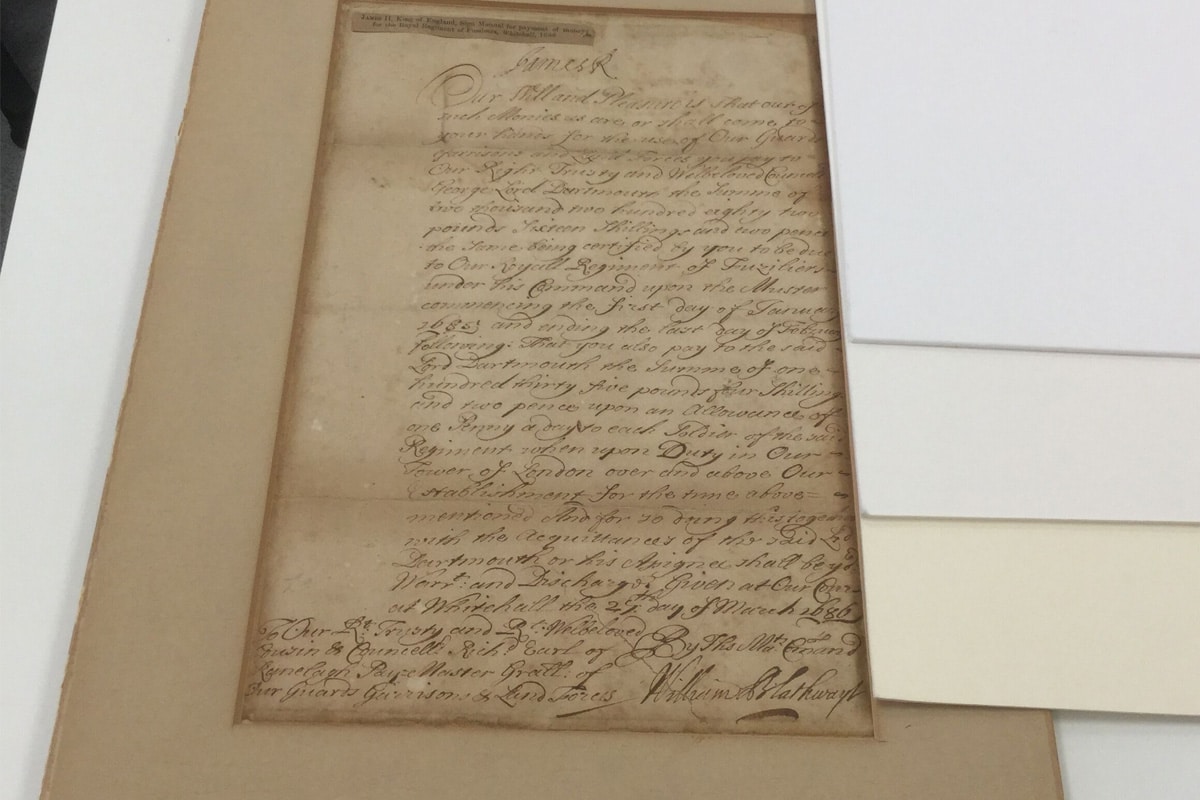 JAMES II, King of England, Sign Manual for payment of money
for the Royal Regiment of Fusiliers, Whitehall, 1686
James R
Our Will and Pleasure is that out of
such Monies as are, or shall come, to
your hands for the use of Our Guards
Garrisons and Land Forces you pay to
Our Right Trusty and Welbeloved Councell
George Lord Dartmouth the Summe of
two thousand two hundred eighty two
pounds Sixteen Shillings and two pence
the same being certified by you to be due
to Our Royall Regiment of Fuziliers
under his Command upon the Muster
commencing the first day of January
1685/6 and ending the last day of February
following. That you also pay to the said
Lord Dartmouth the Summe of one
hundred thirty five pounds four Shilling
and two pence upon an Allowance of
one Penny a day to each Soldier of the said
Regiment when upon Duty in Our
Tower of London over and above Our
Establishment for the time above=
mentioned And for so doing this together
with the Acquittances of the said Lord
Dartmouth or his Assignes shall be yor
Warrt: and Discharge, Given at Our Cour
at Whitehall the 27th day of March 1686
To Our Rt. Trusty and Rt. Welbeloved
Cousin & Councellr. Richd. Earl of
Ranelagh Pay=Master Grall: of
Our Guards Garrisons & Land Forces
By His Mats. Command
William Blathwayt